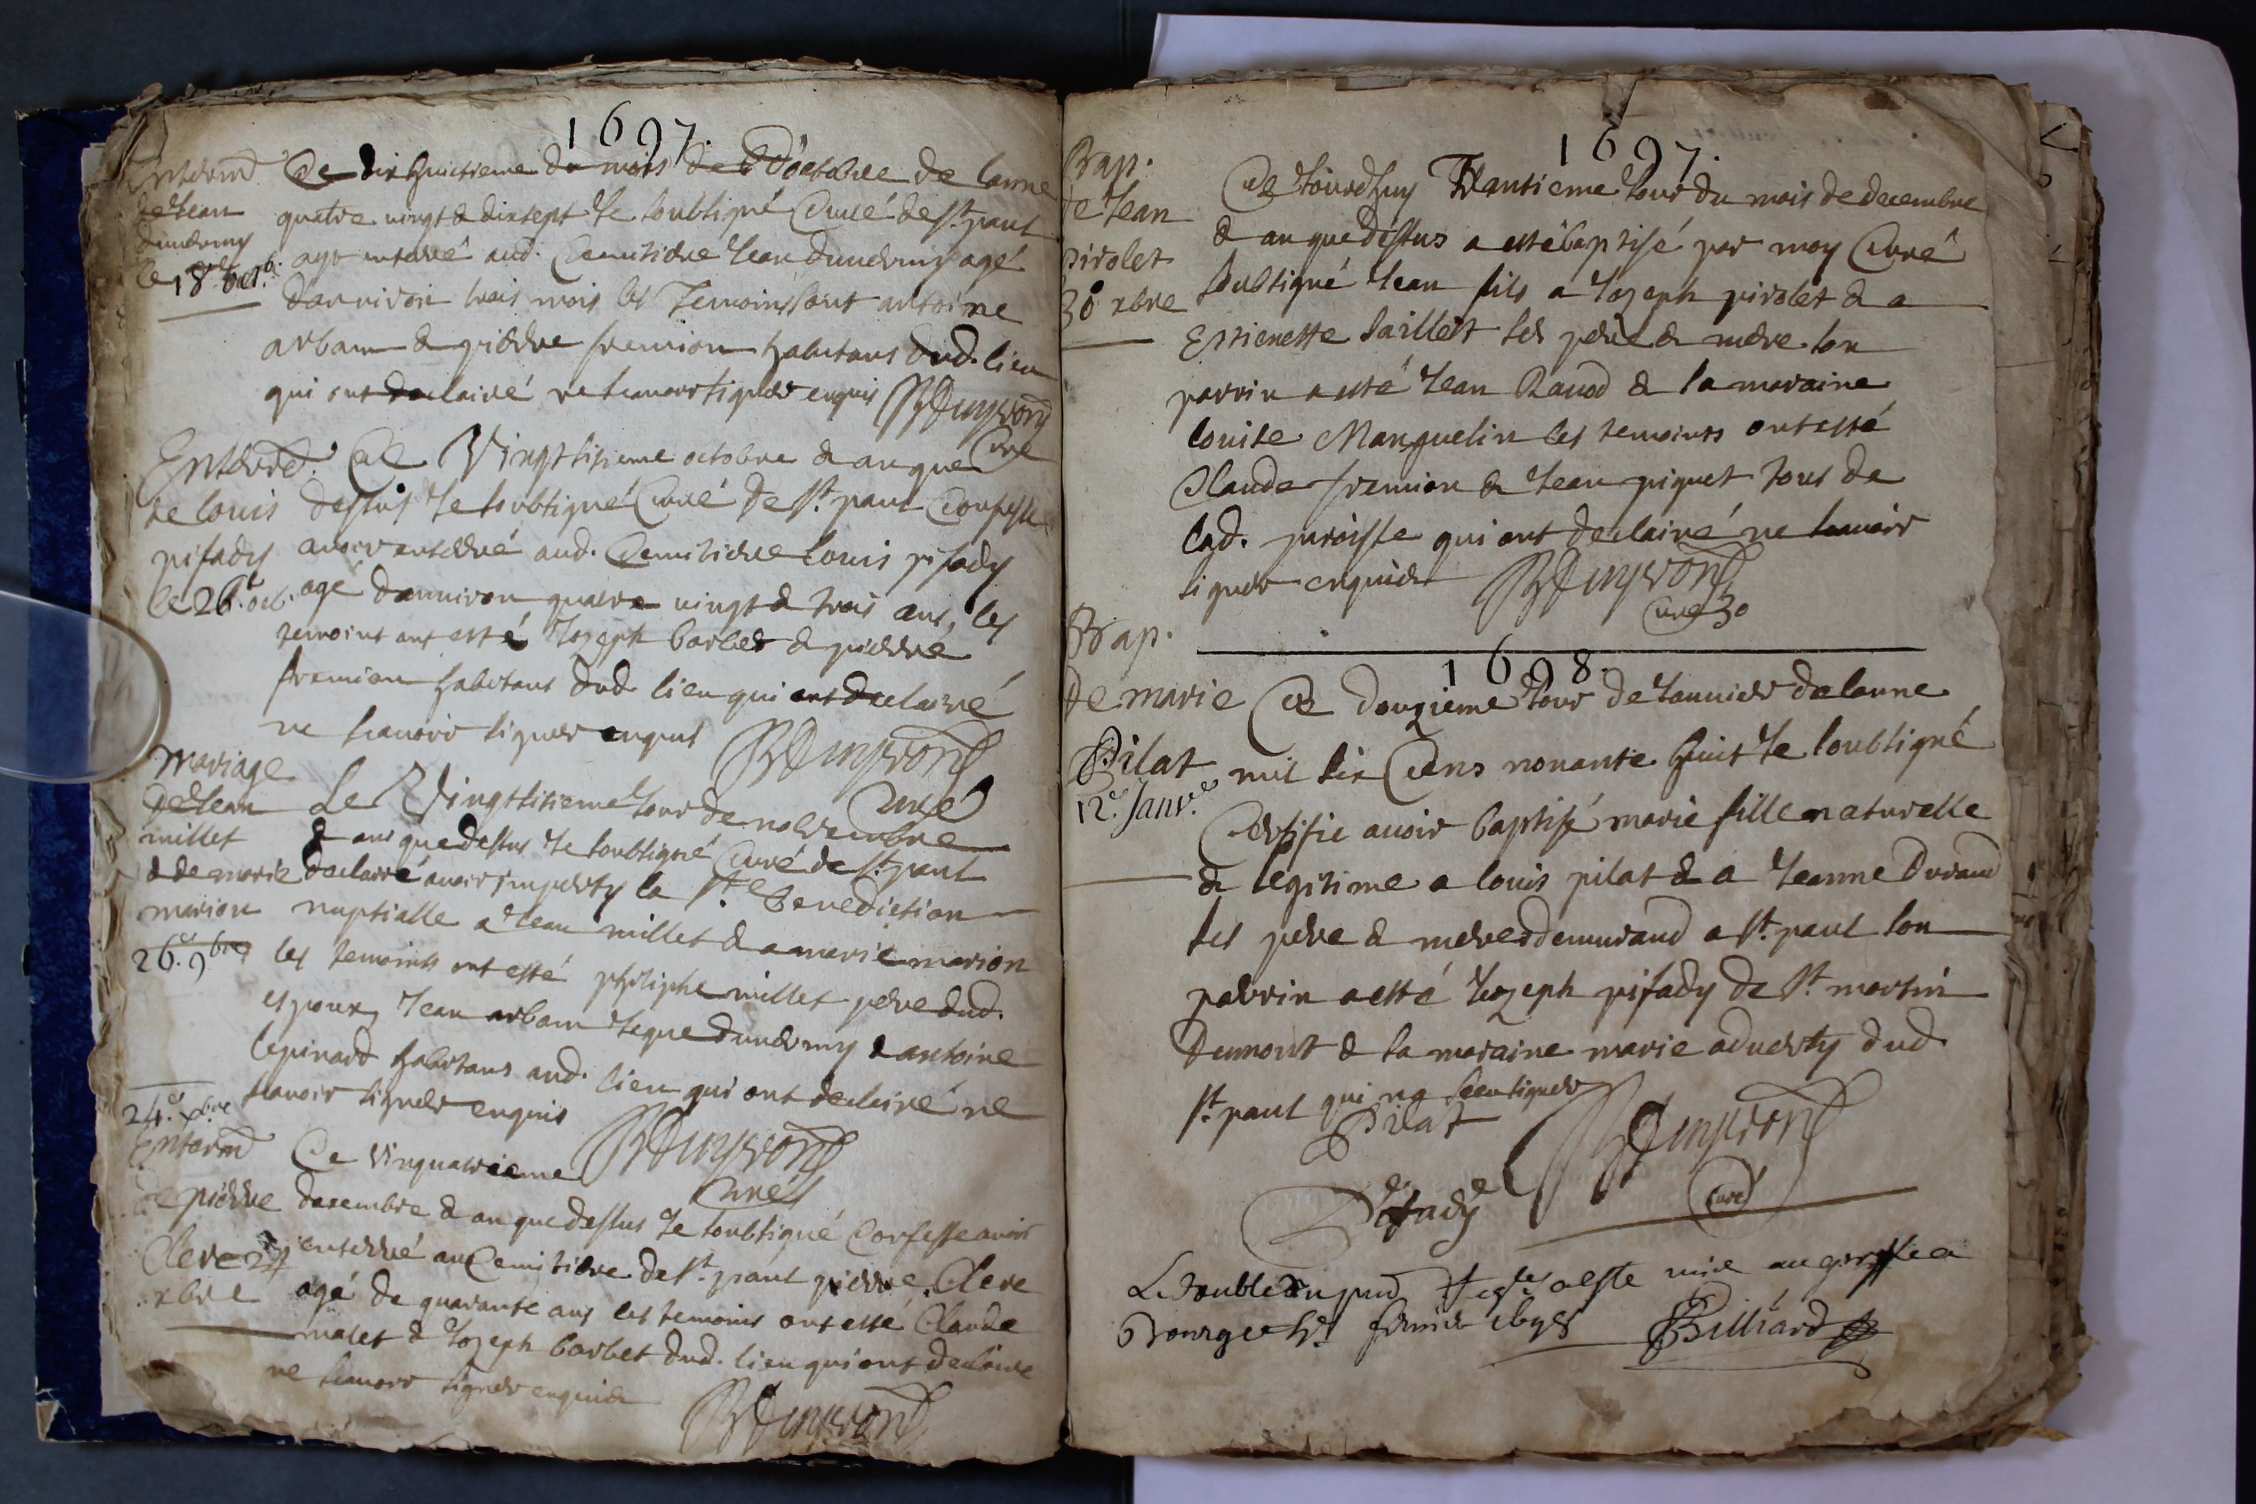 1697.
Enterm͞t
de Jean
dunermy
le 18e oct.b.
Ce dixhuictieme du mois de D'octobre de lanne
quatre vingt & dixsept Je soubsigné Curé de St. paul
ay enterré aud. Cemitiere Jean dunermy agé
d'anviron trois mois les Temoins sont antoine
arbam & pierre fremion habitans dud. lieu
qui ont declairé ne scavoir signer enquis
Curé
Enterré.
de louis
pifady
le 26.e oct.
Ce Vingtsisieme octobre & an que
dessus Je soubsigné Curé de St. paul Confesse
avoir enterré aud. Cemitiere louis pifady
agé d'anviron quatre vingt & trois ans, les
temoins ont esté Jozeph barbet & pierre
fremion habitans dud. lieu qui ont declairé
ne scavoir signer enquis
Curé
mariage
de Jean
millet
& de marie
marion
26.e 9bre
Le Vingtsisieme Jour de novembre
& an que dessus Je soubsigné Curé de St. paul
declairé avoir imparty la Ste. Benediction
nuptialle a Jean millet & a marie marion
les temoins ont esté philiphe millet pere dud.
espoux, Jean arbam Jeque dunermy & antoine
lepinard habitans aud. lieu qui ont declairé ne
scavoir signer enquis
Curé
24.e xbre
Enterm͞t
de pierre
Clere 24
xbre
Ce vinquatrieme
decembre & an que dessus Je soubsigné Confesse avoir
enterré au Cemitiere de St. paul pierre Clere
agé de quarante ans les temoins ont esté Claude
malet & Jozeph barbet dud. lieu qui ont declaire
ne scavoir signer enquis
1697.
Bap.
de Jean
pirolet
30 xbre
Ce Jourdhuy Trantieme Jour du mois de decembre
& an que dessus a esté baptisé par moy Curé
soubsigné Jean fils a Jozeph pirolet & a
Estienette saillet ses pere & mere son
parrin a esté Jean Ravod & la maraine
louise Manguelin les temoins ont esté
Claude fremion & Jean piquet tous de
lad. paroisse qui ont declairé ne scavoir
signer enquis
Curé 30
Bap.
1698.
De marie
Pilat
12.e Janv.e
Ce douzieme Jour de Januier de lanne
mil six Cens nonante huit Je soubsigné
Certifie avoir baptisé marie fille naturelle
& legitime a louis pilat & a Jeanne Durand
ses pere & mere demurand a St. paul son
parrin a esté Jozeph pifady de St. martin
Dumont & la maraine marie aduerty dud.
St. paul qui na sceu signer
Pilat
Pifady
Curé
Le double a esté mis au greffe a
Bourg ce
Billiard